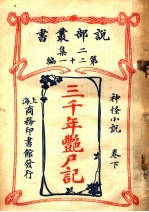 說部叢書
二集
第二十一編
神怪小說
卷下
三千年艷尸記
上海商務印書館發行